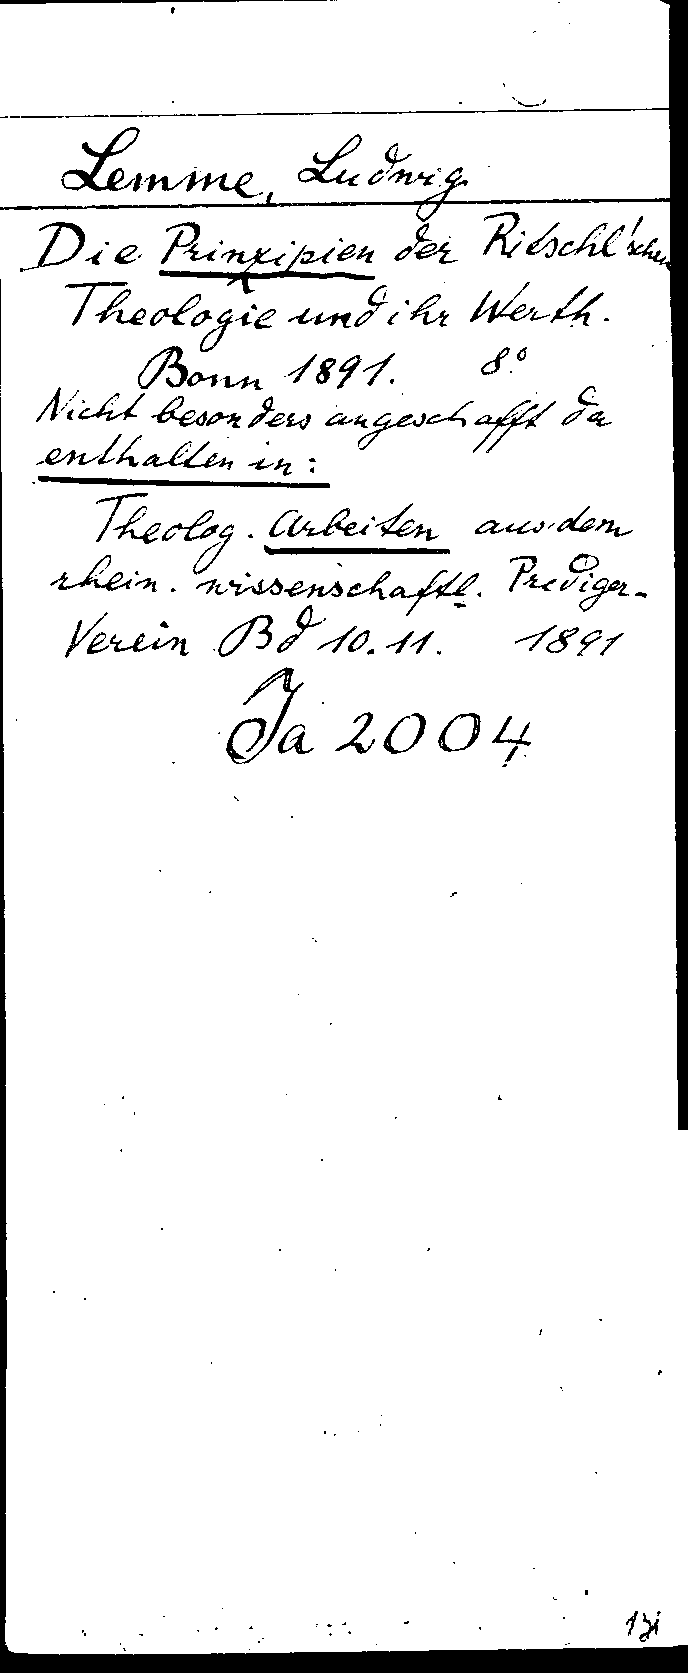 Lemme, Ludwig
Die Prinzipien der Ritschl'schen
Theologie und ihr Werth.
Bonn 1891. 8°
Nicht besonders angeschafft da
enthalten in:
Theolog. Arbeiten aus dem
rhein. wissenschaftl. Prediger-
Verein Bd 10.11. 1891
Ja 2004